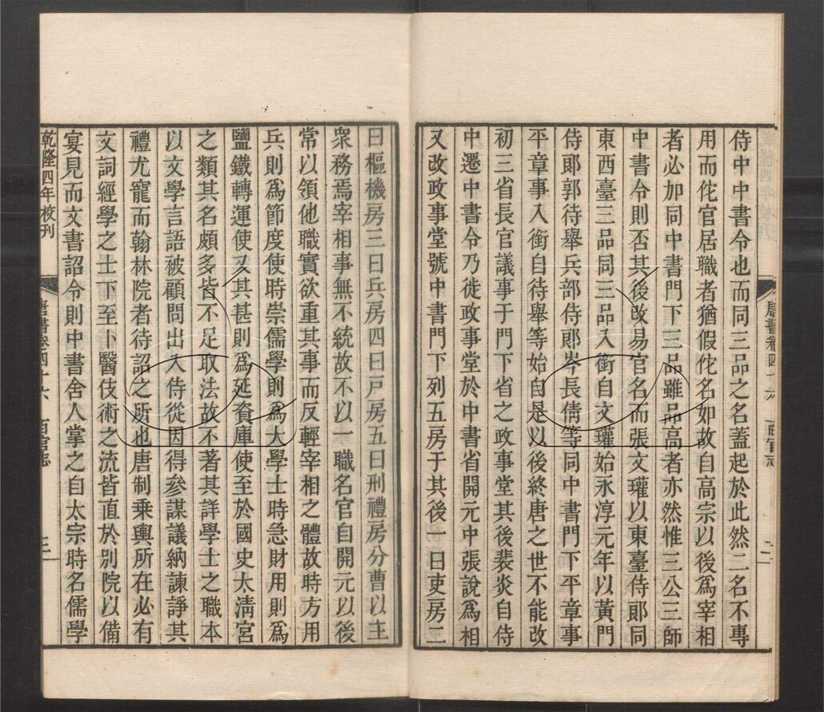 侍中中書令也而同三品之名蓋起於此然二名不專
用而佗官居職者猶假佗名如故自高宗以後爲宰相
者必加同中書門下三品雖品高者亦然惟三公三師
中書令則否其後改易官名而張文瓘以東臺侍郞同
東西臺三品同三品入銜自文瓘始永淳元年以黃門
侍郞郭待舉兵部侍郞岑長倩等同中書門下平章事
平章事入銜自待舉等始自是以後終唐之世不能改
初三省長官議事于門下省之政事堂其後裴炎自侍
中遷中書令乃徙政事堂於中書省開元中張說爲相
又改政事堂號中書門下列五房于其後一曰吏房二
曰樞機房三曰兵房四曰戸房五曰刑禮房分曹以主
衆務焉宰相事無不統故不以一職名官自開元以後
常以領他職實欲重其事而反輕宰相之體故時方用
兵則爲節度使時崇儒學則爲大學士時急財用則爲
鹽鐵轉運使又其甚則爲延資庫使至於國史太淸宮
之類其名頗多皆不足取法故不著其詳學士之職本
以文學言語被顧問出入侍從因得參謀議納諫諍其
禮尤寵而翰林院者待詔之所也唐制乘輿所在必有
文詞經學之士下至卜醫伎術之流皆直於別院以備
宴見而文書詔令則中書舍人掌之自太宗時名儒學
乾隆四年校刊
唐書卷四十六 百官志 三